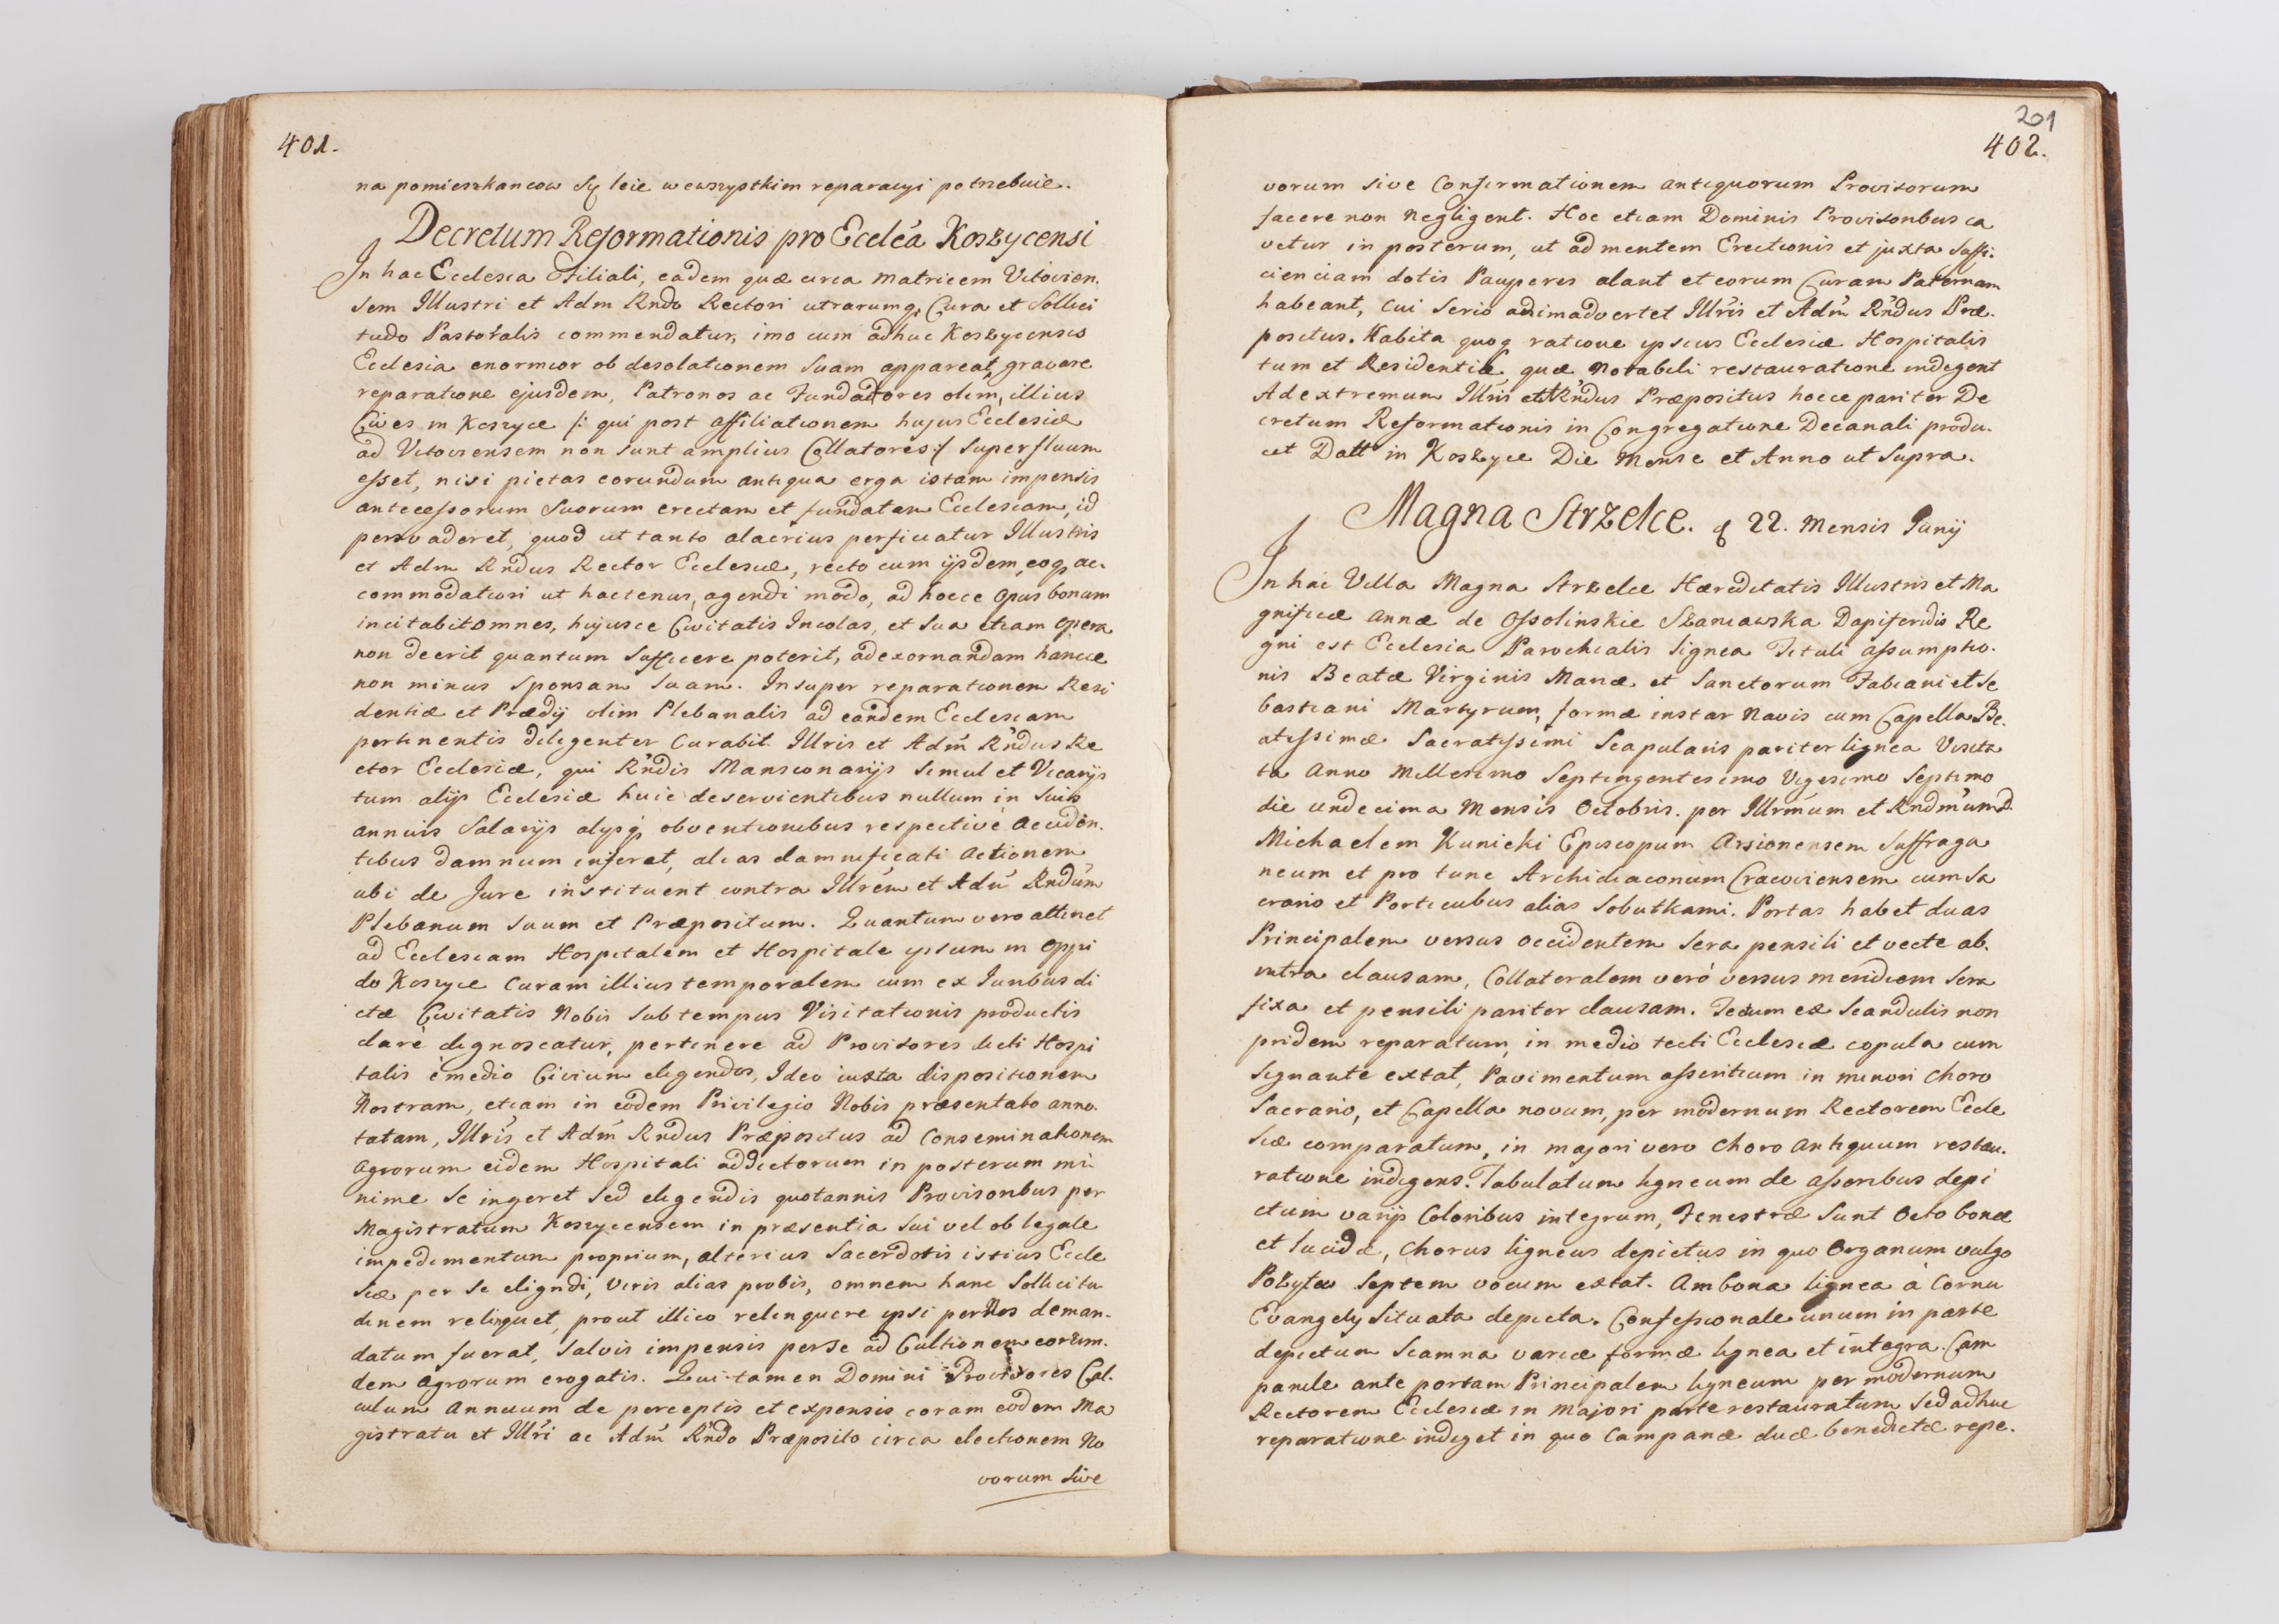 401.
na pomieszkancow Sę leie wewszystkim reparacyi potrzebuie.
Decretum Reformationis pro Ecclêa Koszycensi
In hac Ecclesia Filiali, eadem quæ circa Matricem Vitovien.
sem Illustri et Adm Rndo Rectori utrarumq Cura et Sollici
tudo Pastoralis commendatur, imo cum adhuc Koszycensis
Ecclesia enormior ob desolationem suam appareat, gravare
reparatione ejusdem, Patronos ac Fundatores olim, illius
Cives in Koszyce /: qui post affiliationem hujus Ecclesiæ
ad Vitoviensem non sunt amplius Collatores :/ superfluum
esset, nisi pietas eorundum antiqua erga istam impensis
antecessorum Suorum erectam et fundatam Ecclesiam, id
persvaderet, quod ut tanto alacrius perficiatur Illustris
et Adm Rndus Rector Ecclesiæ, recto cum ijsdem, eoq ac.
commodatiori ut hactenus, agendi modo, ad hocce opus bonum
incitabit omnes, hujusce Civitatis Incolas, et sua etiam opera
non deerit quantum Sufficere poterit, ad exornandam hancce
non minus Sponsam Suam. Insuper reparationem Resi
dentiæ et Prædij olim Plebanalis ad eandem Ecclesiam
pertinentis diligenter Curabit Illris et Adm̃ Rñdus Re
ctor Ecclesiæ, qui Rñdis Mansionarijs Simul et Vicarijs
tum alijs Ecclesiæ huic deservientibus nullum in Suis
annuis Salarijs alysq, obventionibus respective acciden.
tibus damnum inferet, alias damnificati actionem
ubi de Jure instituent contra Illrem et Adm̃ Rndum
Plebanum Suum et Præpositum. Quantum vero attinet
ad Ecclesiam Hospitalem et Hospitale ipsum in Oppi
do Koszyce Curam illius temporalem cum ex Juribus di
ctæ Civitatis Nobis Sub tempus Visitationis productis
clare dignoscatur, pertinere ad Provisores dicti Hospi
talis e medio Civium eligendos, Ideo iuxta dispositionem
Nostram, etiam in eodem Privilegio Nobis præsentato anno.
tatam, Illris et Adm̃ Rndus Præpositus ad Conseminationem
Agrorum eidem Hospitali addictorum in posterum mi
nime Se ingeret Sed eligendis quotannis Provisoribus per
Magistratum Koszycensem in præsentia Sui vel ob legale
impedimentum proprium, alterius Sacerdotis istius Eccle
siæ per Se eligndi, Viris alias probis, omnem hanc Sollicitu
dinem relinquet, prout illico relinquere ipsi per Nos deman.
datum fuerat, Salvis impensis per Se ad Cultionem eorum.
dem Agrorum erogatis. Qui tamen Domini Provisores Cal.
culum annuum de perceptis et expensis coram eodem Ma
gistratu et Illri ac Adm̃ Rñdo Præposito circa electionem No
vorum Sive
201
402.
vorum Sive Confirmationem antiquorum Provisorum
facere non Negligent. Hoc etiam Dominis Provisoribus ca
vetur in posterum, ut ad mentem Erectionis et juxta Suffi.
cienciam dotis Pauperes alant et eorum Curam Paternam
habeant, Cui Serio adimadvertet Illris et Adm̃ Rñdus Præ.
positus. Habita quoq ratione ipsius Ecclesiæ Hospitalis
tum et Residentiæ quæ Notabili restauratione indigent
Ad extremum Illris et Rñdus Præpositus hocce pariter De
cretum Reformationis in Congregatione Decanali produ.
cet Datt in Koszyce Die Mense et Anno ut Supra.
Magna Strzelce. 22. Mensis Junij
In hac Villa Magna Strzelce Hæreditatis Illustris et Ma
gnificæ Annæ de Ossolinskie Szaniawska Dapiferidis Re
gni est Ecclesia Parochialis lignea Tituli Assumptio.
nis Beatæ Virginis Mariæ et Sanctorum Fabiani et Se
bastiani Martyrum, formæ instar Navis cum Capella Be.
atissimæ Sacratissimi Scapularis pariter lignea Visita
ta Anno Millesimo Septingentesimo Vigesimo Septimo
die undecima Mensis Octobris. per Illrmum et Rndmum D.
Michaelem Kunicki Episcopum Arsionensem Suffraga
neum et pro tunc Archidiaconum Cracoviensem cum Sa
crario et Porticubus alias Sobutkami. Portas habet duas
Principalem versus occidentem Sera pensili et vecte ab.
intra clausam, Collateralem vero versus meridiem Sera
fixa et pensili pariter clausam. Tectum ex Scandulis non
pridem reparatum, in medio tecti Ecclesiæ copula cum
Signante extat, Pavimentum asseritium in minori Choro
Sacrario, et Capella novum, per modernum Rectorem Eccle
siæ comparatum, in majori vero Choro antiquum restau.
ratione indigens. Tabulatum ligneum de asseribus depi
ctum varijs Coloribus integrum, Fenestræ Sunt Octo bonæ
et lucidæ, Chorus ligneus depictus in quo Organum vulgo
Pozytiw Septem vocum extat. Ambona lignea a Cornu
Evangelij Situata depicta. Confessionale unum in parte
depictum Scamna variæ formæ lignea et integra. Cam
panile ante portam Principalem ligneum per modernum
Rectorem Ecclesiæ in majori parte restauratum Sed adhuc
reparatione indiget in quo Campanæ duæ benedictæ repe.